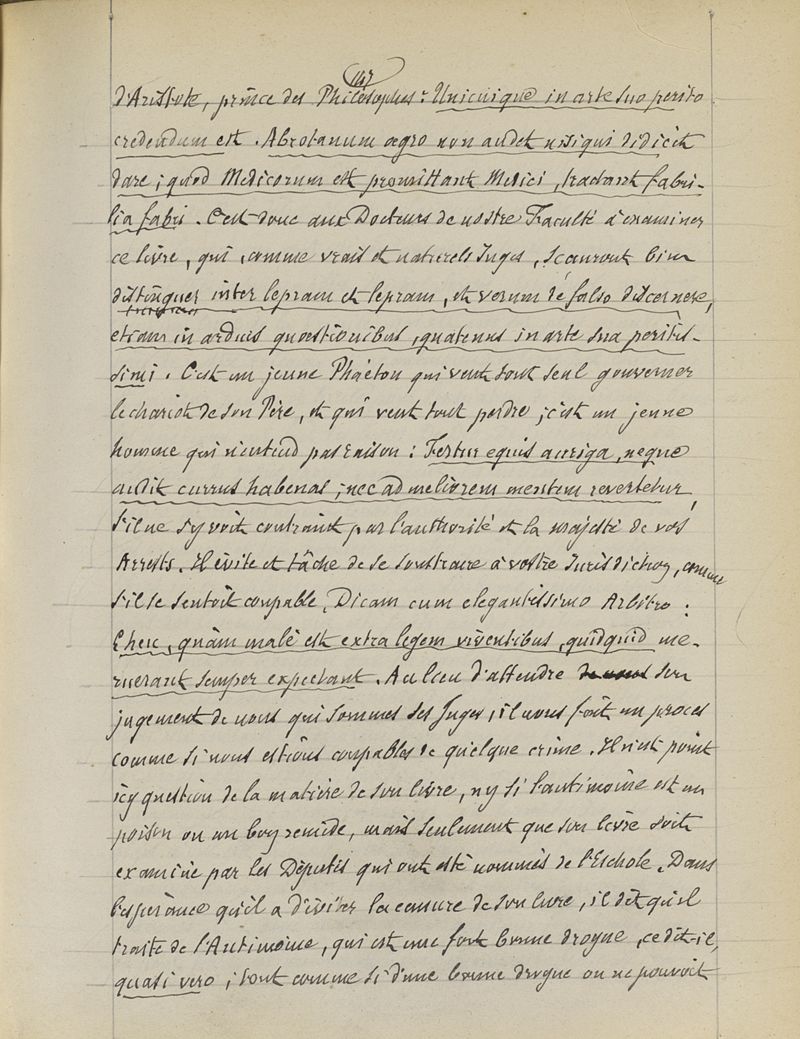 147
d'Aristote, prince des Philosophes: Unicuique in arte suo perito
credendum est. Abrotanum aegro non audet nisi qui didicit
dare; quod Medicorum est promittant Medici, tractant fabri-
lia fabri. C'est donc aux Docteurs de nostre Faculté à examiner
ce livre, qui, comme vrais et naturels Juges, sçauront bien
distinguer inter lepram et lepram, et verum dé falso discernere,
etiam in arduis quaestionibus, quatenus in arte sua peritis-
simi. C'est un jeune Phaéton qui veut tout seul gouverner
le chariot de son Père, et qui veut tout perdre; c'est un jeune
homme qui n'entend pas raison: Fertur equis auriga, neque
audit currus habenas; nec ad meliorem mentem revertetur,
s'il ne s'y voit contraint par l'authorité et la majesté de vos
Arrests. Il évite et tâche de se soustraire à vostre Jurisdiction, comme
s'il se sentoit coupable, Dicam cum elegantissimo Arbitro:
Eheu, quàm malè est extra legem viventibus, quidquid me-
ruerant semper expectant. Au lieu d'attendre son
jugement de nous qui sommes ses Juges, il nous fait un procès
comme si nous estions coupables de quelque crime. Il n'est point
icy question de la matière de son livre, ny si l'antimoine est un
poison ou un boy remède, mais seulement que son livre soit
examiné par les Députés qui ont esté nommés de l'Eschole. Dans
l'espérance qu'il a d'éviter la censure de son livre, il dit qu'il
traite de l'Antimoine, qui est une fort bonne drogue, ce dit-il,
quasi vero; tout comme si d'une bonne drogue on ne pouvoit